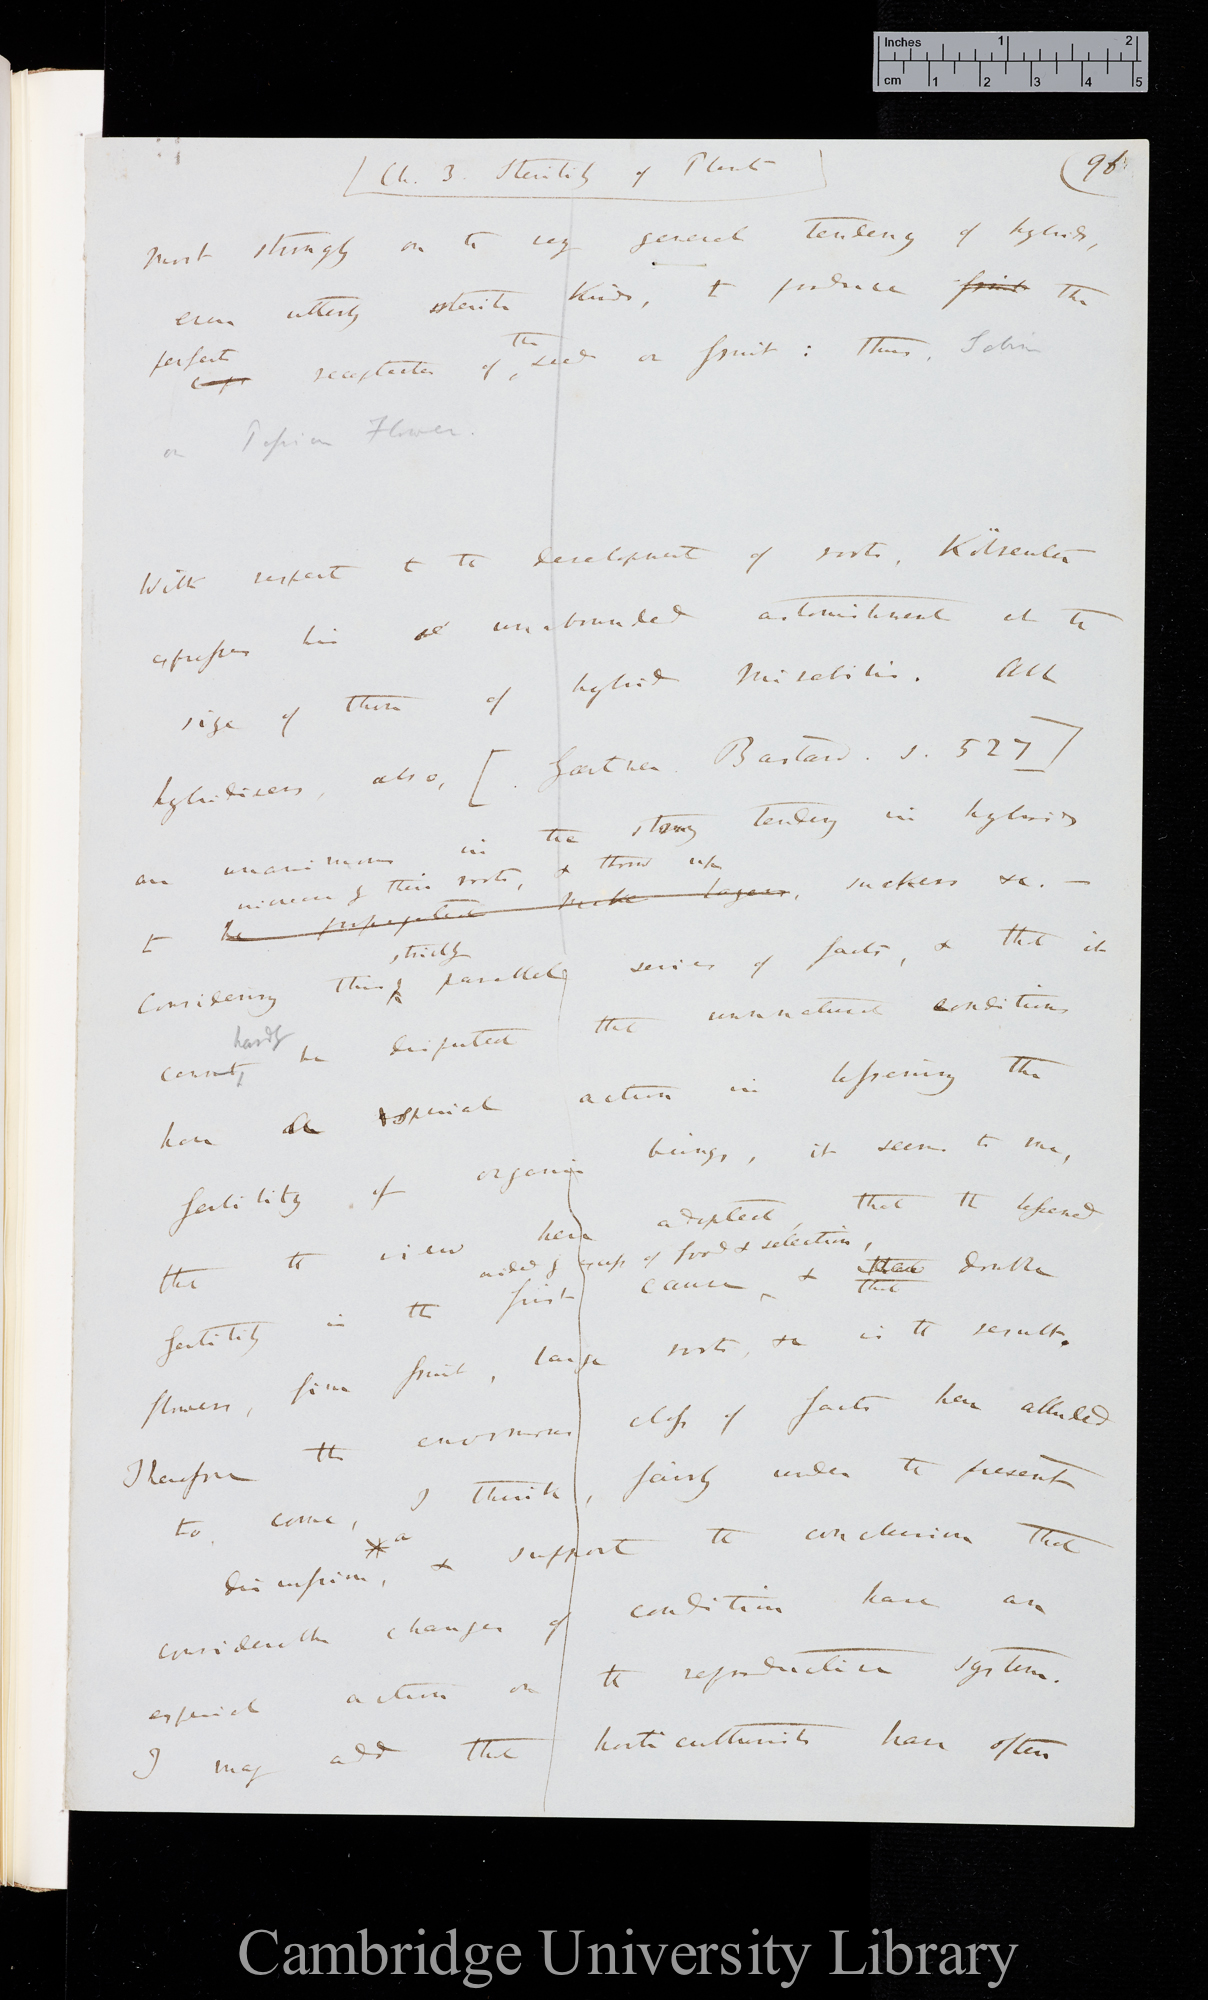 Inches 1 2
cm 1 2 3 4 5
Ch. 3. Sterility of Plants
(96
most strongly on the very general tendency of hybrids,
even utterly sterile kinds, to produce fruit the
perfect
caps receptacles of, the seed or fruit: thus, Sabine
on Passion Flower.
With respect to the development of roots, Kölreuter
expresses his unbounded astonishment at the
size of those of hybrid Mirabilis. All
hybridisers, also, [. Gærtner. Bastard. s. 527]
are unanimous in the strong tendency in hybrids
increase of their roots, & throw up
to be propagated make layers, suckers &c. —
strictly
Considering this parallel series of facts, & that it
hardly
cannot, be disputed that unnatural conditions
have an especial action in lessening the
fertility of organic beings, it seems to me,
that the view here adopted, that the lessened
aided by excess of food & selection,
fertility is the first cause, & that double
that
flowers, fine fruit, large roots, &c is the result.
Therefore the enormous class of facts here alluded
to, come, I think, fairly under the present
a
discussion, & support the conclusion that
considerable changes of condition have an
especial action on the reproductive system.
I may add that horticulturists have often
Cambridge University Library